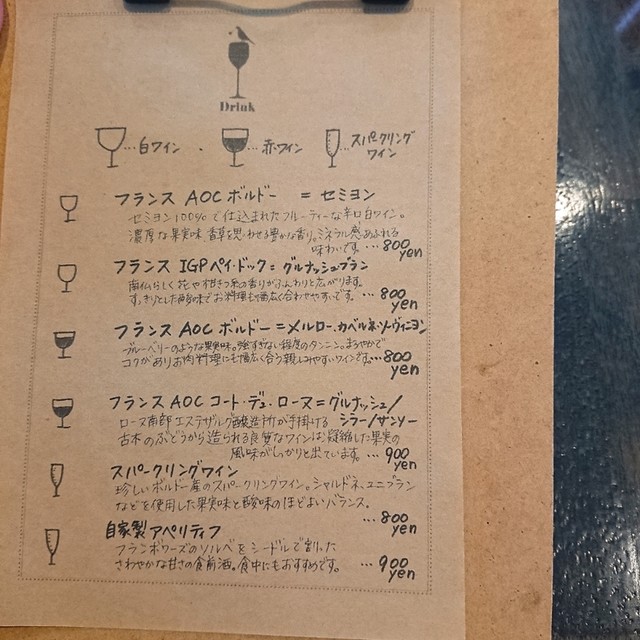 Drink
…白ワイン . …赤ワイン …スパークリング
ワイン
フランス AOC ボルドー = セミヨン
セミヨン100%で仕込まれたフルーティーな辛口白ワイン。
濃厚な果実味 香草を思わせる豊かな香り。ミネラル感あふれる
味わいです。…800
yen
フランス IGP ペイ・ドック = グルナッシュブラン
南仏らしく花や柑きつ系の香りがふんわりと広がります。
すっきりとした酸味でお料理も幅広く合わせやすいです。…800
yen
フランス AOC ボルドー = メルロー、カベルネ・ソーヴィニヨン
ブルーベリーのような果実味。強すぎない程度のタンニン。まろやかで
コクがありお肉料理にも幅広く合う親しみやすいワインです。…800
yen
フランス AOC コート・デュ・ローヌ = グルナッシュ/
ローヌ南部 エステザルグ醸造所が手掛ける シラー/サンソー
古木のぶどうから造られる良質なワインは凝縮した果実の
風味がしっかりと出ています。…900
yen
スパークリングワイン
珍しいボルドー産のスパークリングワイン。シャルドネ、ユニブラン
などを使用した果実味と酸味のほどよいバランス。
…800
yen
自家製アペリティフ
フランボワーズのソルベをシードルで割った
さわやかな甘さの食前酒。食中にもおすすめです。…900
yen